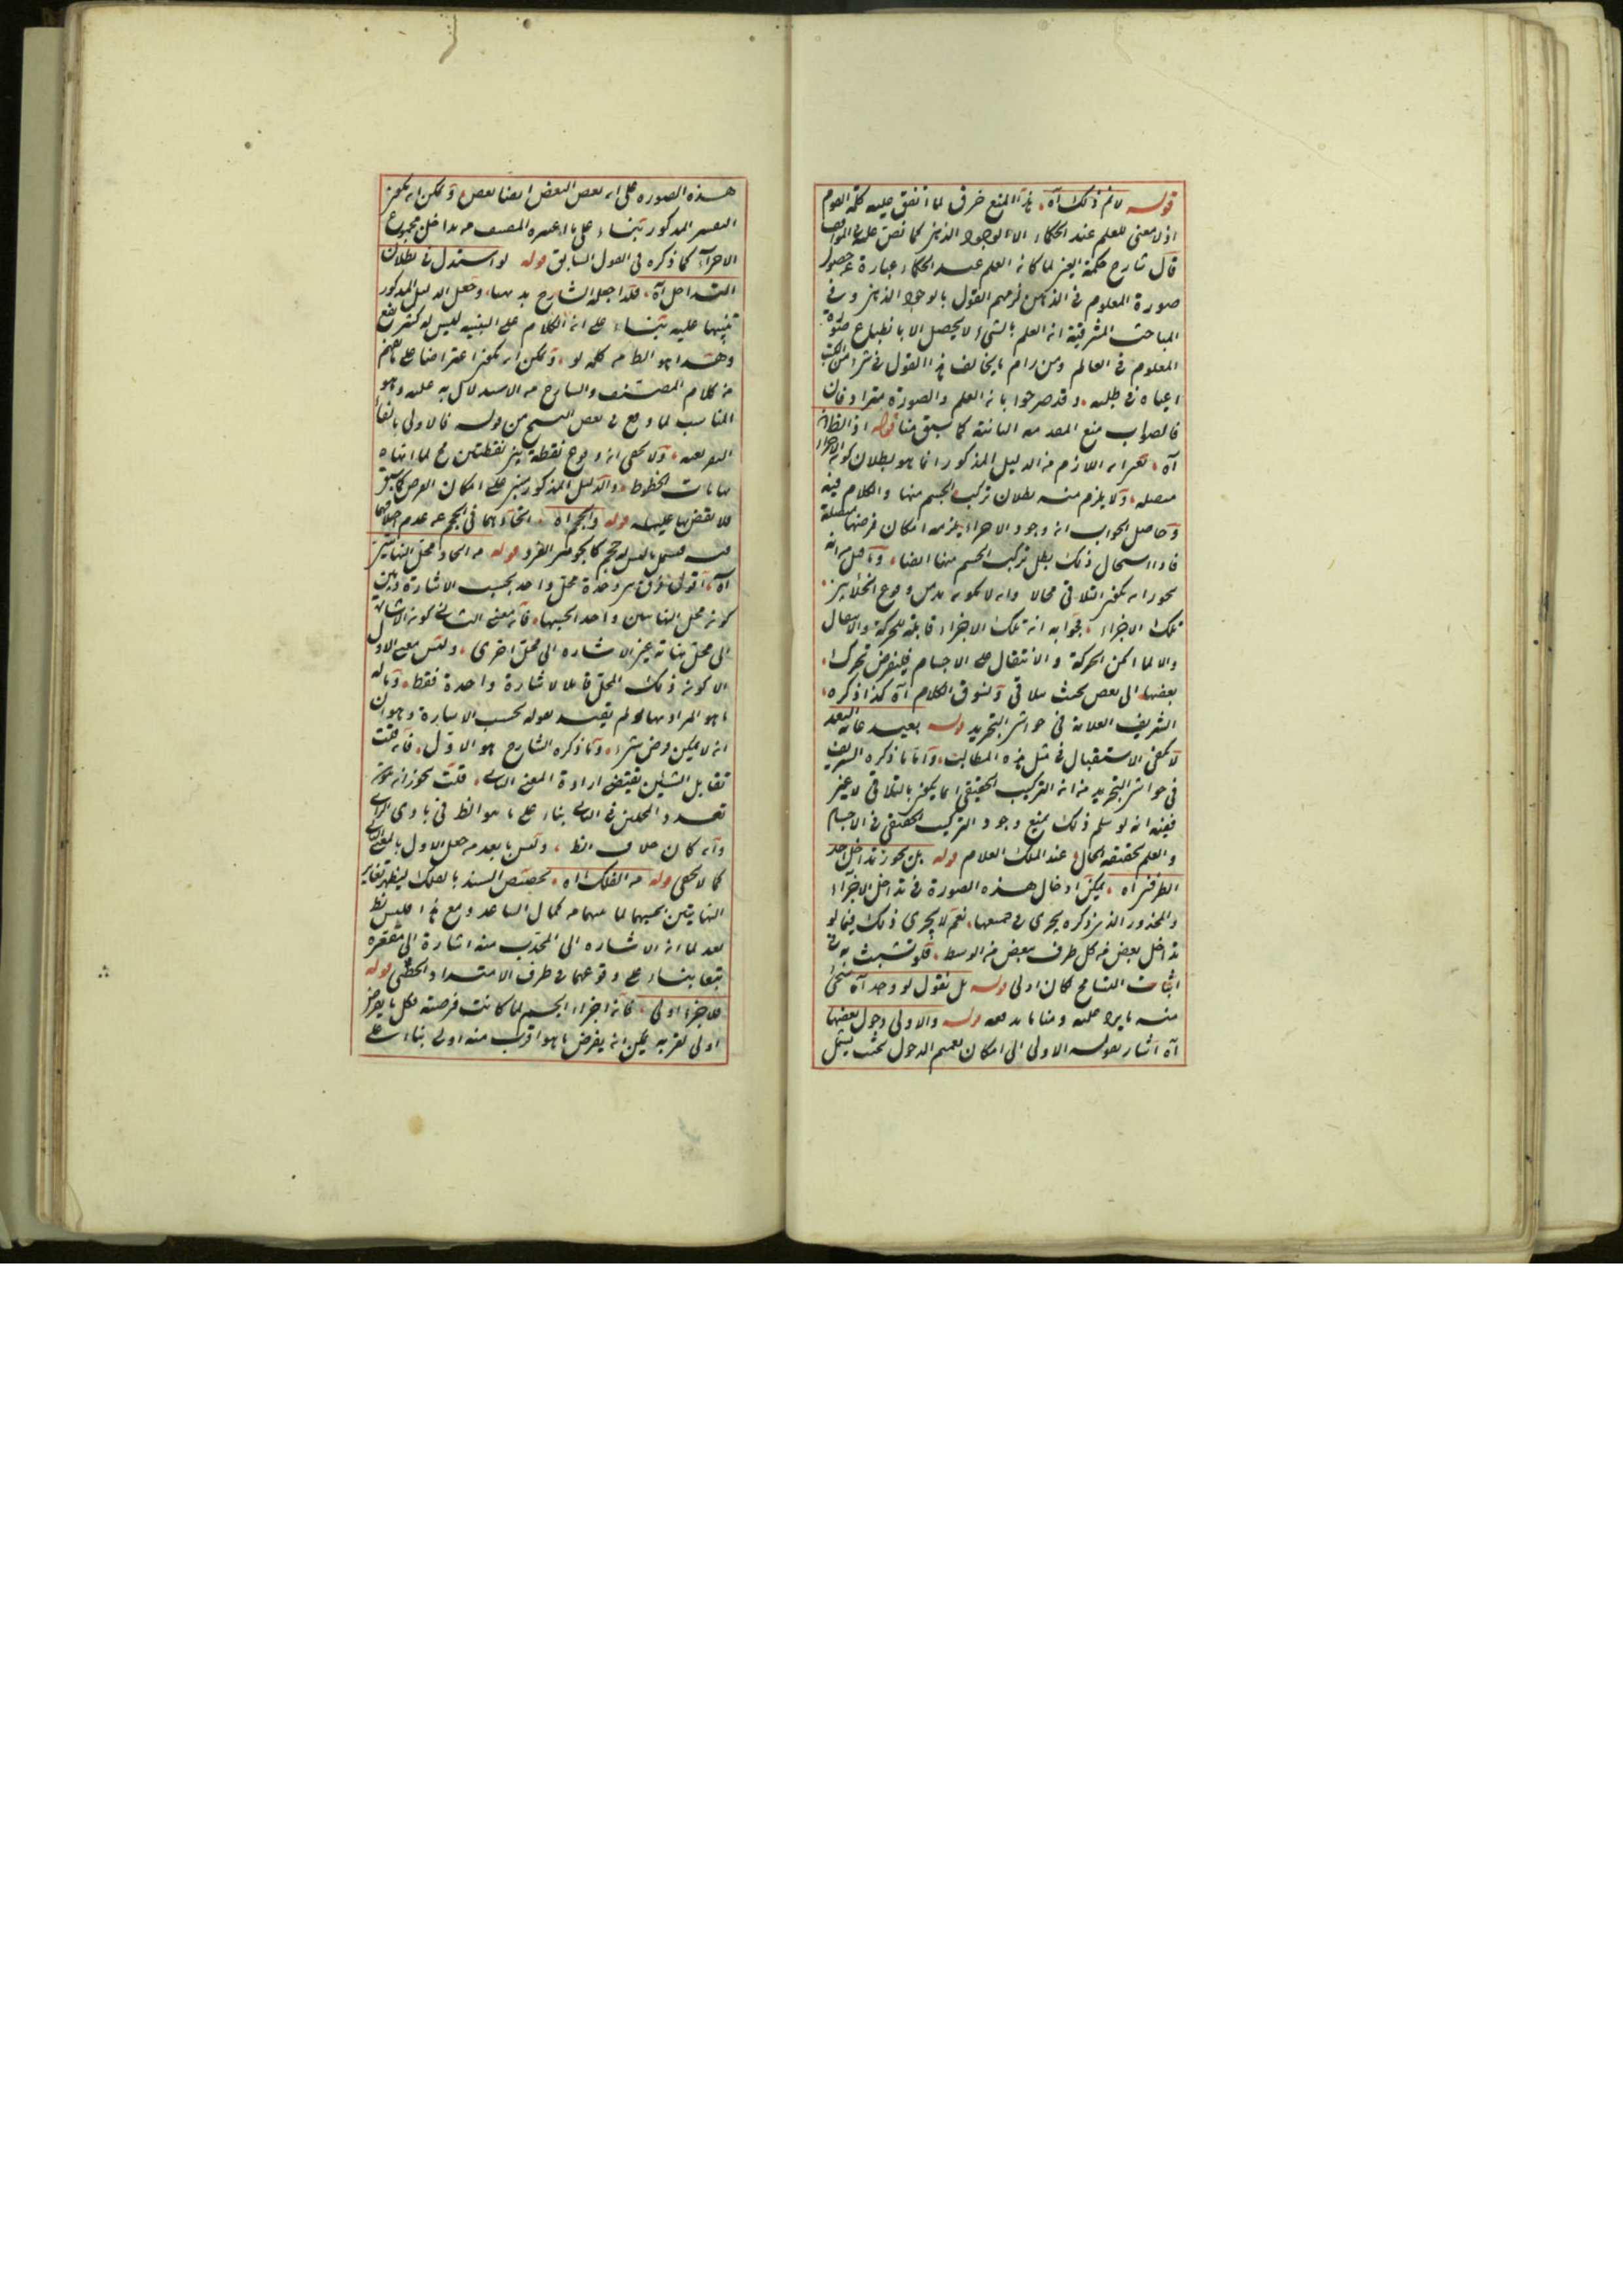 قوله لانم ذلك آه هذا المنع خرق لما اتفق عليه كلمة القوم
اذ لا معنى للعلم عند الحكماء الا الوجود الذهني كما نص عليه في المواقف
قال شارح حكمة العين لما كان العلم عند الحكماء عبارة عن حصول
صورة المعلوم في الذهن لزمهم القول بالوجود الذهني وفي
المباحث المشرقية ان العلم بالشيء لا يحصل الا بانطباع صورة
المعلوم في العالم ومن رام ما يخالف هذا القول في شيء من الكتب
اعياه في طلبه وقد صرحوا بان العلم والصورة مترادفان
فالصواب منع المقدمة الثانية كما سبق منا قوله اذ الظاهر
آه نعم ان اللازم من الدليل المذكور انما هو بطلان كون الاجزاء
متصلة ولا يلزم منه بطلان تركب الجسم منها والكلام فيه
وحاصل الجواب ان وجود الاجزاء يلزمه امكان فرضها متصلة
فاذا استحال ذلك بطل تركب الجسم منها ايضا وما قيل من انه
يجوز ان يكون التلاقي محالا وان لا يكون بدون وقوع الخلاء بين
تلك الاجزاء فجوابه ان تلك الاجزاء قابلة للحركة والانتقال
والا لما امكن الحركة والانتقال على الاجسام فليفرض تحرك
بعضها الى بعض بحيث يتلاقى ونسوق الكلام آه كذا ذكره
الشريف العلامة في حواشي التجريد قوله بعيد غاية البعد
لا يكفي الاستقبال في مثل هذه المطالب واما ما ذكره الشريف
في حواشي التجريد من ان التركيب الحقيقي انما يكون بالتلاقي لا غير
ففيه انه لو سلم ذلك يمنع وجود التركيب الحقيقي في الاجسام
والعلم بحقيقة الحال عند الملك العلام قوله بل يجوز تداخل احد
الطرفين آه يمكن ادخال هذه الصورة في تداخل الاجزاء
والمحذور الذي ذكره يجري في جميعها نعم لا يجري ذلك فيما لو
تداخل بعض من كل طرف ببعض من الوسط فلو تشبث به في
اثبات التسامح لكان اولى قوله بل نقول لو وجد آه
منه ما يرد عليه ومنا ما يدفعه قوله والاولى دخول بعضها
آه اشار بقوله الاولى الى امكان تعميم الدخول بحيث يشمل
هذه الصورة على ان بعض البعض ايضا بعض ويمكن ان يكون
التفسير المذكور بناء على ما اعتبره المصنف من تداخل مجموع
الاجزاء كما ذكره في القول السابق قوله لو استدل في بطلان
التداخل آه فلذا جعله الشارح بديهيا وجعل الدليل المذكور
تنبيها عليه بناء على ان الكلام على التنبيه ليس له كثير نفع
وهذا هو الظ من كلمة لو ويمكن ان يكون اعتراضا على ما يفهم
من كلام المصنف والشارح من الاستدلال به عليه وهو
المناسب لما وقع في بعض النسخ من قوله فالاولى بالفاء
التفريعية ولا يخفى ان وقوع نقطة بين نقطتين مح لما انها
نهايات الخطوط والدليل المذكور مبني على امكان الفرض كما سبق
فلا نقض بها عليه قوله والحجم آه اتحادهما في الحجم عدم اختلافهما
فيه فيشمل ما ليس له حجم كالجوهر الفرد قوله من اتحاد محل النهايتين
آه اقول فرق بين وحدة محل واحد بحسب الاشارة وبين
كونه محل النهايتين واحد الحيثيها فان معنى الثاني كون الاشارة
الى محل نهاية عين الاشارة الى محل اخرى وليس معنى الاول
الا كون ذلك المحل قابلا لاشارة واحدة فقط وما له
ما هو المراد بها ولم يقيد بقوله بحسب الاشارة وهو ان
انه لا يمكن فرض شيء وما ذكره الشارح هو الاول فان قلت
تقابل الشيئين يقتضي ارادة المعنى الثاني قلت يجوز ان يكون
تعدد المحلين في الثاني بناء على ما هو الظ في بادي الرأي
وان كان خلاف الظ وليس بابعد من حمل الاول بالمعنى الثاني
كما لا يخفى قوله من الفلك آه تخصيص السند بالفلك ليظهر تغاير
النهايتين بحيثيهما لما بينهما من كمال التباعد ومع هذا فليس بظ
بعد لما ان الاشارة الى المحدب منه اشارة الى مقعره
تبعا بناء على وقوعهما في طرف الامتداد الخطي قوله
فلا جزء اولى فان اجزاء الجسم لما كانت فرضية فكل ما يفرض
اولى لقربه يمكن ان يفرض ما هو اقرب منه اولى بناء على